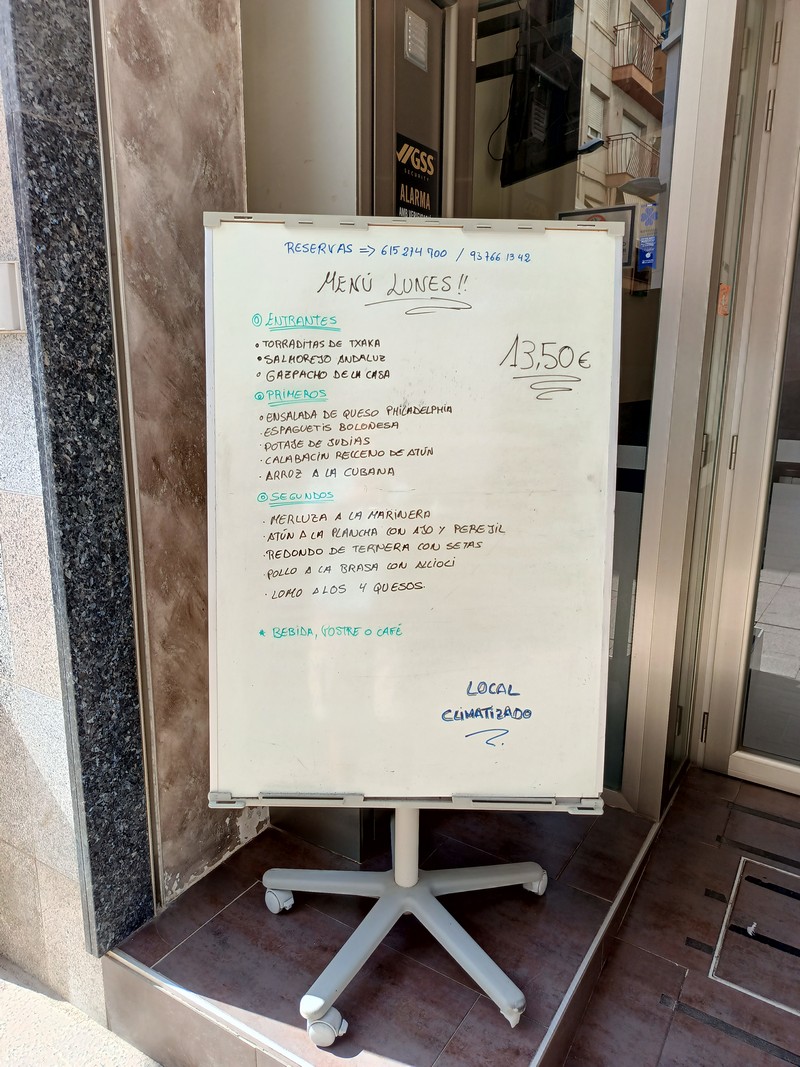 GSS
SECURITY
ALARMA
RESERVAS => 615 274 700 / 93 766 13 42
MENÚ LUNES!!
13,50€
ENTRANTES
• TORRADITAS DE TXAKA
• SALMOREJO ANDALUZ
• GAZPACHO DE LA CASA
PRIMEROS
• ENSALADA DE QUESO PHILADELPHIA
· ESPAGUETIS BOLOÑESA
· POTAJE DE JUDIAS
· CALABACÍN RELLENO DE ATÚN
· ARROZ A LA CUBANA
SEGUNDOS
· MERLUZA A LA MARINERA
· ATÚN A LA PLANCHA CON AJO Y PEREJIL
· REDONDO DE TERNERA CON SETAS
· POLLO A LA BRASA CON ALLIOLI
· LOMO A LOS 4 QUESOS.
* BEBIDA, POSTRE O CAFÉ
LOCAL
CLIMATIZADO